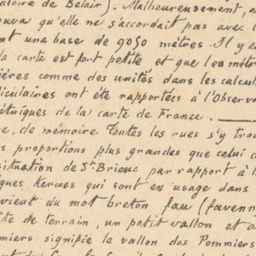 culoire de Belair). Malheureusement, a
rouva qu'elle ne s'accordait pas avec
nt une base de 9050 mètres. Il y e
la carte est fort petite et que les mètr
ières comme des unités dans les calcul
ticulations ont été rapportées à l'Observ
étriques de la carte de France.
e, de mémoire toutes les rues s'y trou
s proportions plus grandes que celui d
situation de St Brieuc par rapport à l
gnes Kerves qui sont en usage dans
vient du mot breton fau (favenn
te de terrain, un petit vallon et a
miers signifie le vallon des Pommiers